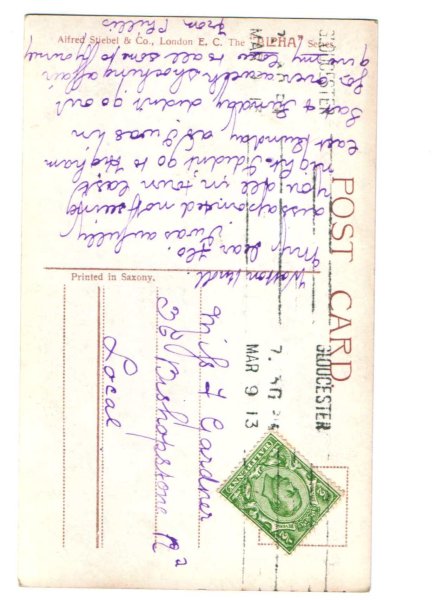 POST CARD
Alfred Stiebel & Co., London E. C. The "ALPHA" Series.
Printed in Saxony.
GLOUCESTER
MAR 9 13
GLOUCESTER
7. 30
MAR 9 13
HALFPENNY
My dear Flo.
I was awfully
dissapointed not seeing
you all in town last
night. I didnt go to
last Sunday as I was in
bed & Lindby didn't go out
for a walk shocking affair
give my love to all some to
from Phillis
Miss F Gardner
32 Bishopstone Rd
Local